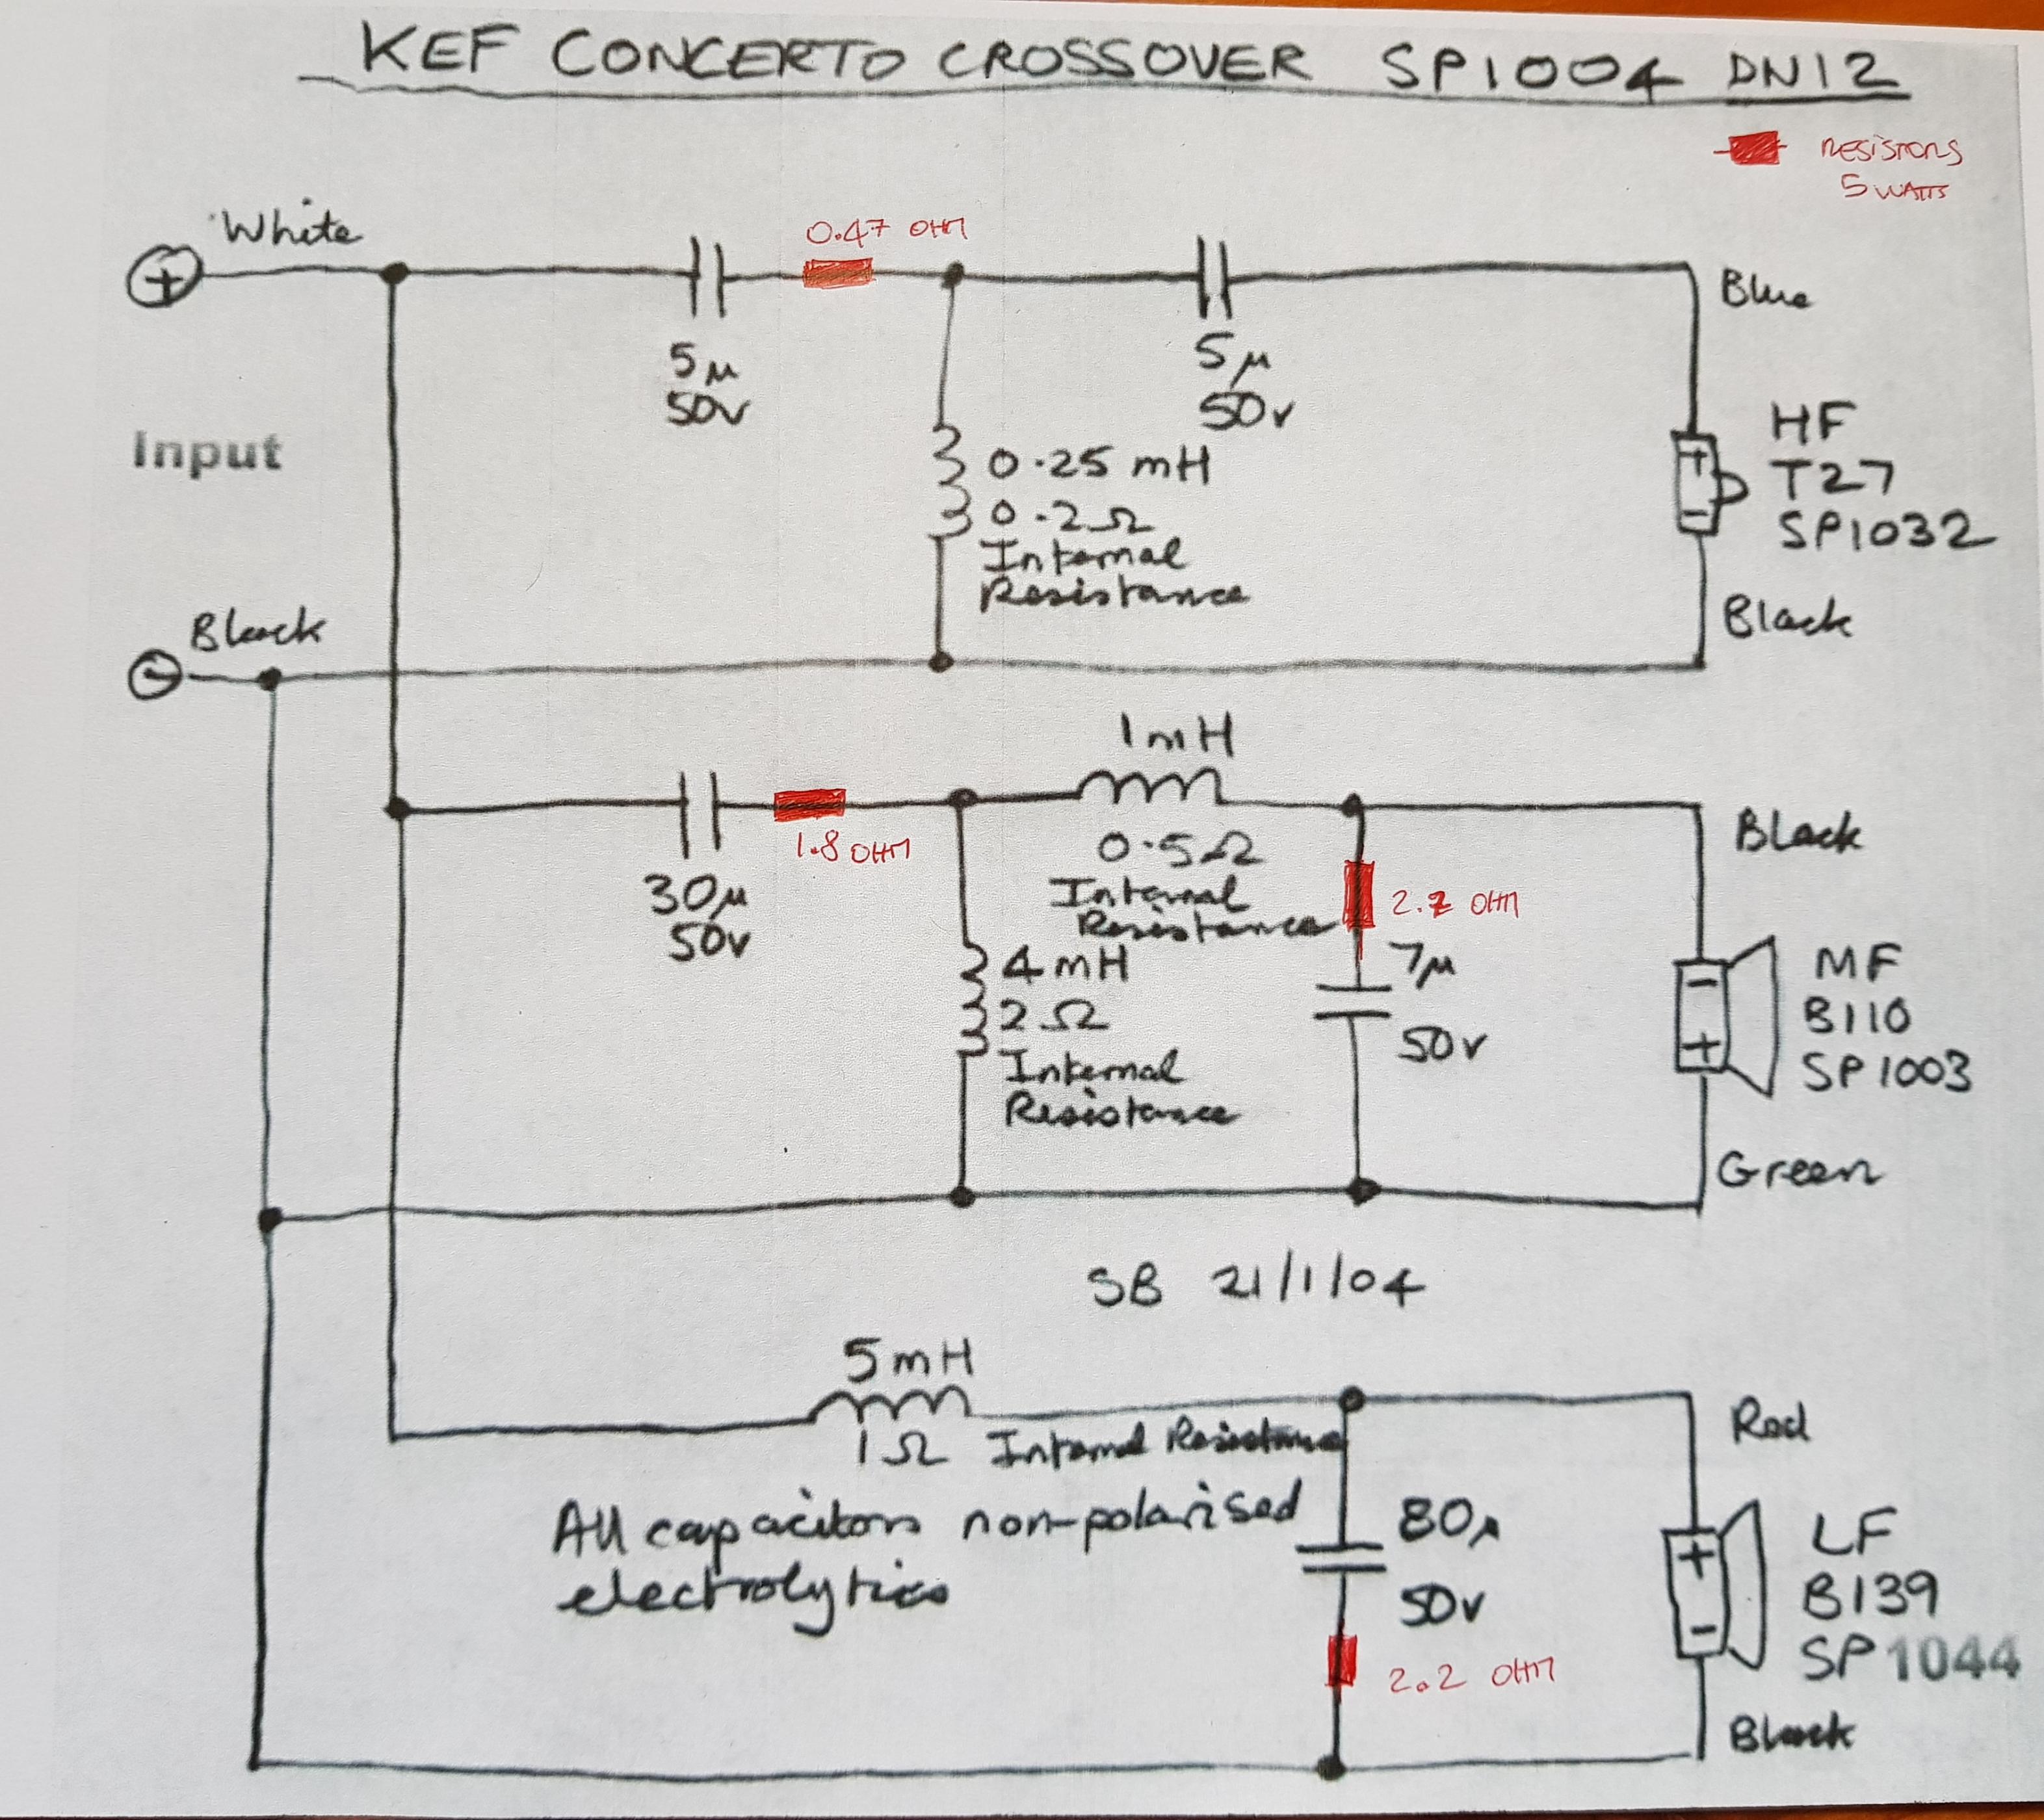 KEF CONCERTO CROSSOVER SP1004 DN12
RESISTORS
5 WATTS
White
+
0.47 OHM
5μ
50v
5μ
50v
Blue
Input
0.25 mH
0.2Ω
Internal
Resistance
+
-
HF
T27
SP1032
Black
-
Black
1mH
0.5Ω
Internal
Resistance
1.8 OHM
30μ
50v
Black
2.2 OHM
4mH
2Ω
Internal
Resistance
7μ
50v
-
+
MF
B110
SP1003
Green
SB 21/1/04
5mH
1Ω Internal Resistance
Red
All capacitors non-polarised
electrolytics
80μ
50v
2.2 OHM
+
-
LF
B139
SP1044
Black